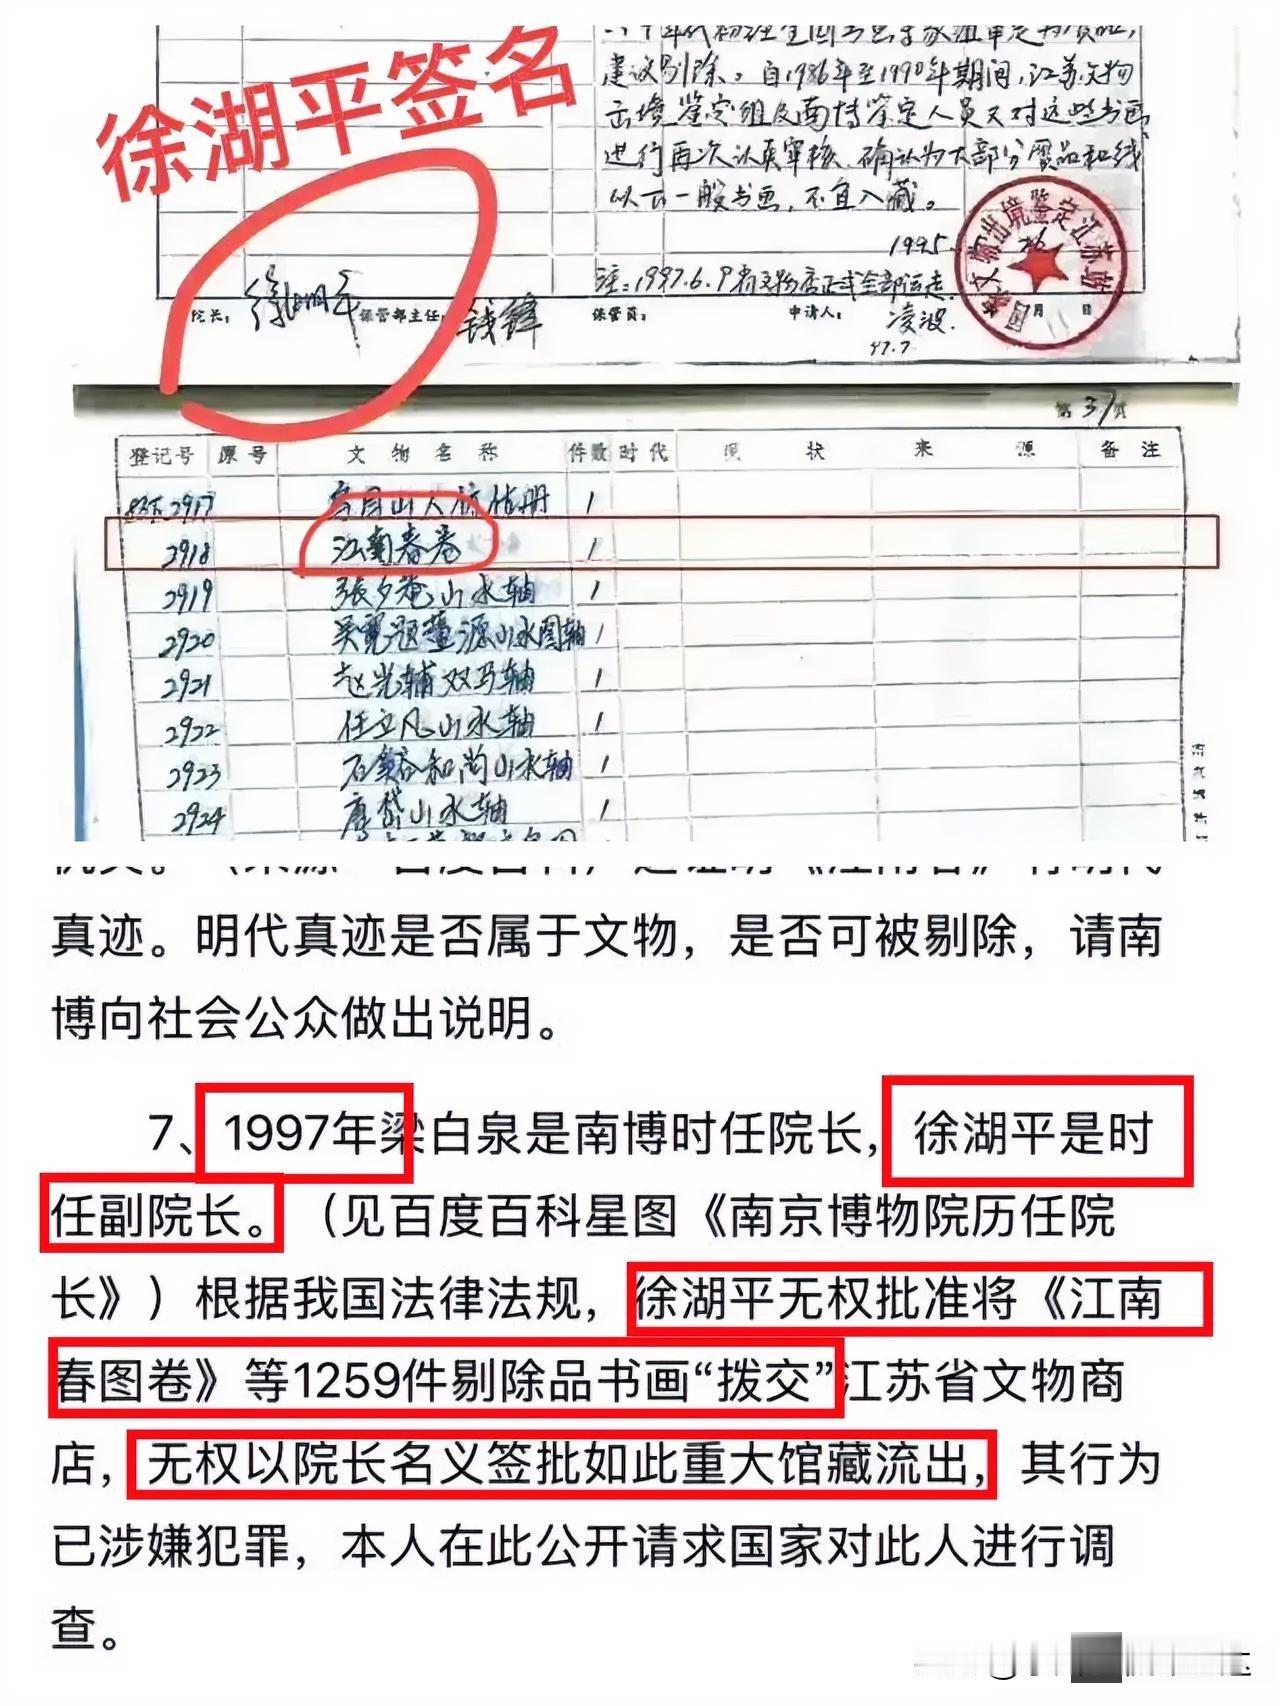 徐湖平签名
建议剔除。自1986年至1990年期间,江苏文物
出境鉴定组及南博鉴定人员又对这些书画
进行再次认真审核,确认为大部分赝品和线
以下一般书画,不宜入藏。
1995
注:1997.6.9
院长: 徐湖平 保管部主任: 钱锋 保管员: 申请人: 凌波.
月 日
97.7
第37页
登记号 原号 文物名称 件数 时代 现状 来源 备注
2917 1
2918 江南春卷 1
2919 张夕庵山水轴 1
2920 吴宽题董源山水图轴 1
2921 赵光辅双马轴 1
2922 任立凡山水轴 1
2923 石溪和尚山水轴 1
2924 唐岱山水轴 1
真迹。明代真迹是否属于文物,是否可被剔除,请南
博向社会公众做出说明。
7、1997年梁白泉是南博时任院长,徐湖平是时
任副院长。(见百度百科星图《南京博物院历任院
长》)根据我国法律法规,徐湖平无权批准将《江南
春图卷》等1259件剔除品书画“拨交”江苏省文物商
店,无权以院长名义签批如此重大馆藏流出,其行为
已涉嫌犯罪,本人在此公开请求国家对此人进行调
查。